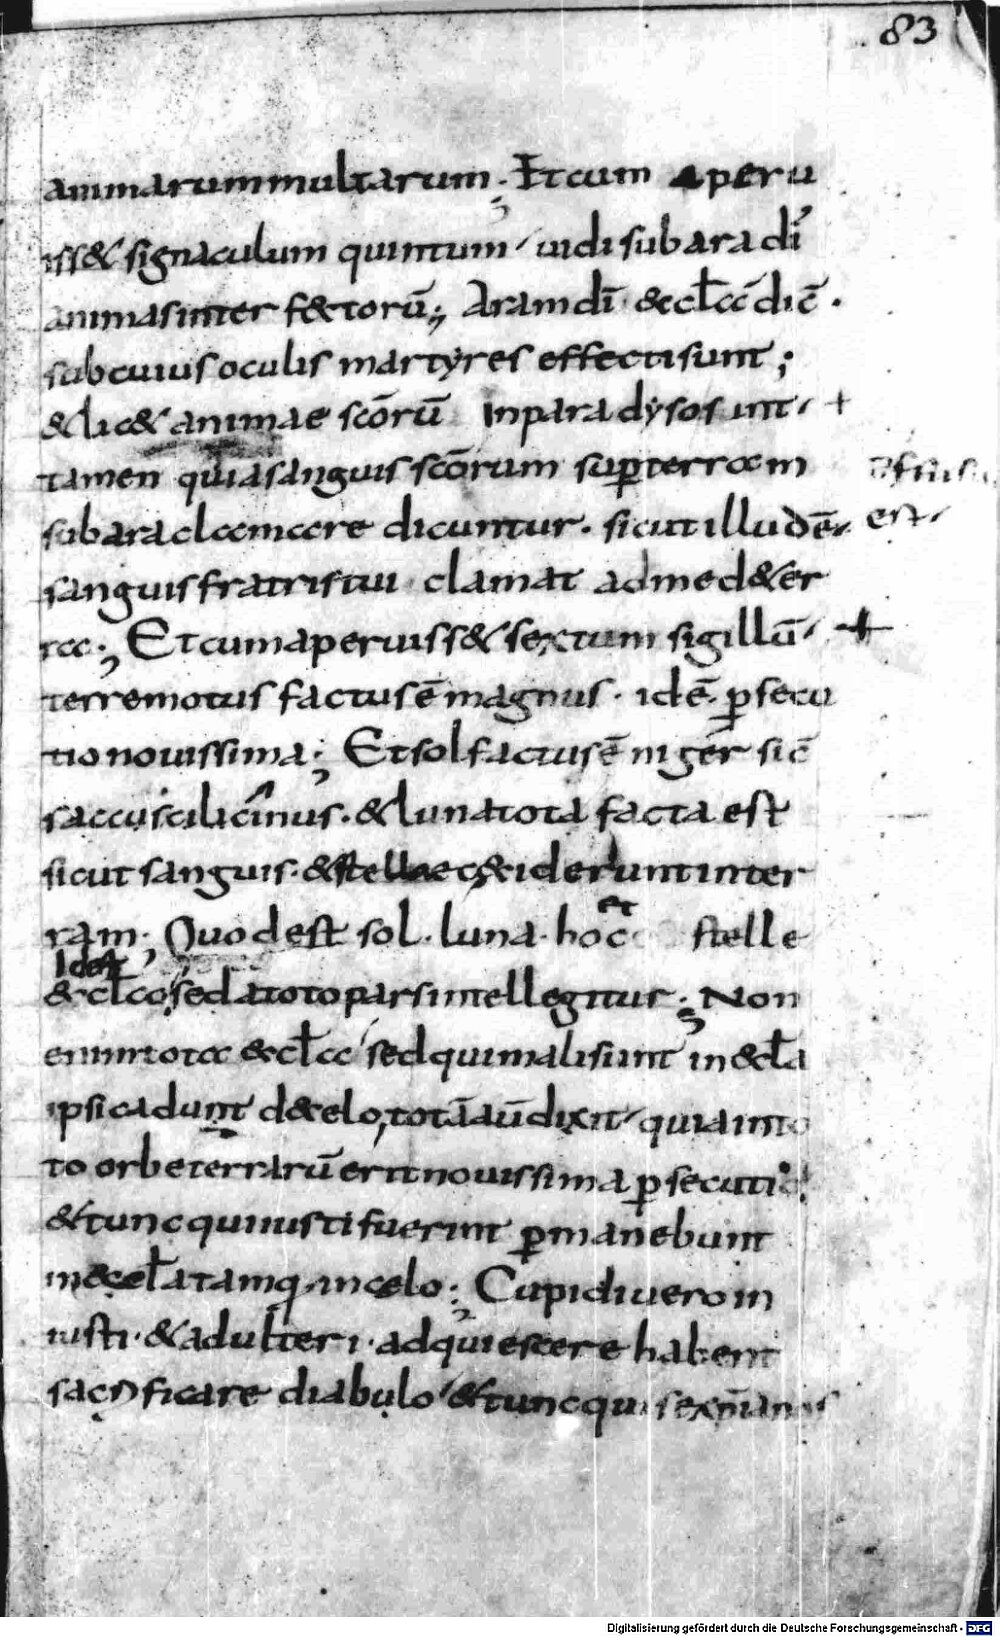 83
animarum multarum. Et cum aperu
iss& signaculum quintum uidi sub ara dī
animas inter f&torū; Aram dī · æcl̄a dic̄ .
sub cuius oculis martyres effecti sunt ;
& lic& animae sc̄orū in paradyso sunt +
tamen quia sanguis sc̄orum sup̱ terram effusus
sub ara clamare dicuntur. sicut illud ē est
sanguis fratris tui clamat ad me d& er
ra ·; Et cum aperuiss& sextum sigillū +
terremotus factus ē magnus · id ē p̱secu
tio nouissima ; Et sol factus ē niger sic̄
saccus cilicinus . & luna tota facta est
sicut sanguis · & stellae c&iderunt in ter
ram ; Quod est sol · luna · hoc et stelle
id est
æcl̄a sed a toto pars intellegitur ; Non
enim tota æcl̄a sed qui mali sunt in æcl̄a
ipsi cadunt de cælo, totā aū dixit quia in to
to orbe terrarū erit nouissima p̱secutio
& tunc qui iusti fuerint p̱manebunt
in æcel̄a tamq̣ in celo ; Cupidi uero in
iusti · & adulteri · adquiescere habent
sacrificare diabulo & tunc qui se xp̄ianos
Digitalisierung gefördert durch die Deutsche Forschungsgemeinschaft - DFG